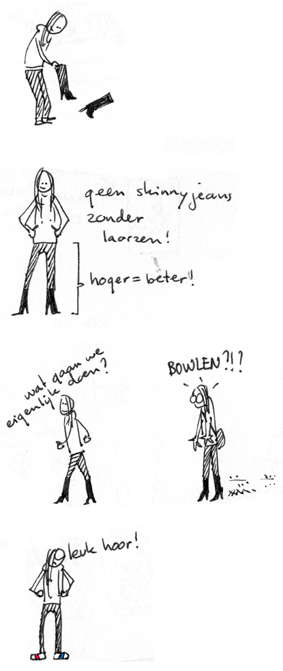 geen skinnyjeans
zonder
laarzen!
hoger = beter!!
wat gaan we
eigenlijk doen?
BOWLEN?!?
leuk hoor!